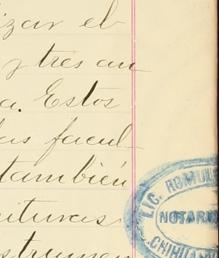 izar el
y tres an
a. Estos
as facul-
también
ituras
strumen
LIC. ROMUL
NOTARI
CHIHUA